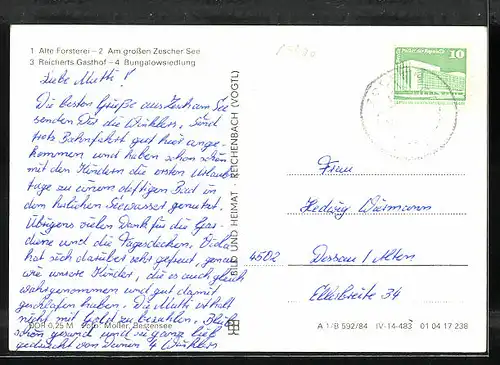 1 Alte Försterei – 2 Am großen Zescher See
3 Reicherts Gasthof – 4 Bungalowsiedlung
Liebe Mutti!
Die besten Grüße aus am See
senden Dir die Winklers. Sind
trotz Bahnfahrt gut hier ange-
kommen und haben schon schön
mit den Kindern die ersten Urlaubs-
tage zu einem Bad in
dem herrlichen Seewasser genutzt.
Übrigens vielen Dank für die Gar-
diene und die Tagesdecken.
hat sich darüber sehr gefreut, genau
wie unsere Kinder, die es auch gleich
wahrgenommen und gut damit
geschlafen haben. Die Mutti ist halt
nicht mit Gold zu bezahlen. Bleib
schön gesund und sei ganz lieb
gedrückt von Deinen 4 Winklers
DDR 0,25 M Foto: Möller, Bestensee
BILD UND HEIMAT · REICHENBACH (VOGTL)
10
Frau
Hedwig
4502 Dessau / Alten
34
A 1/B 592/84 IV-14-483 01 04 17 238